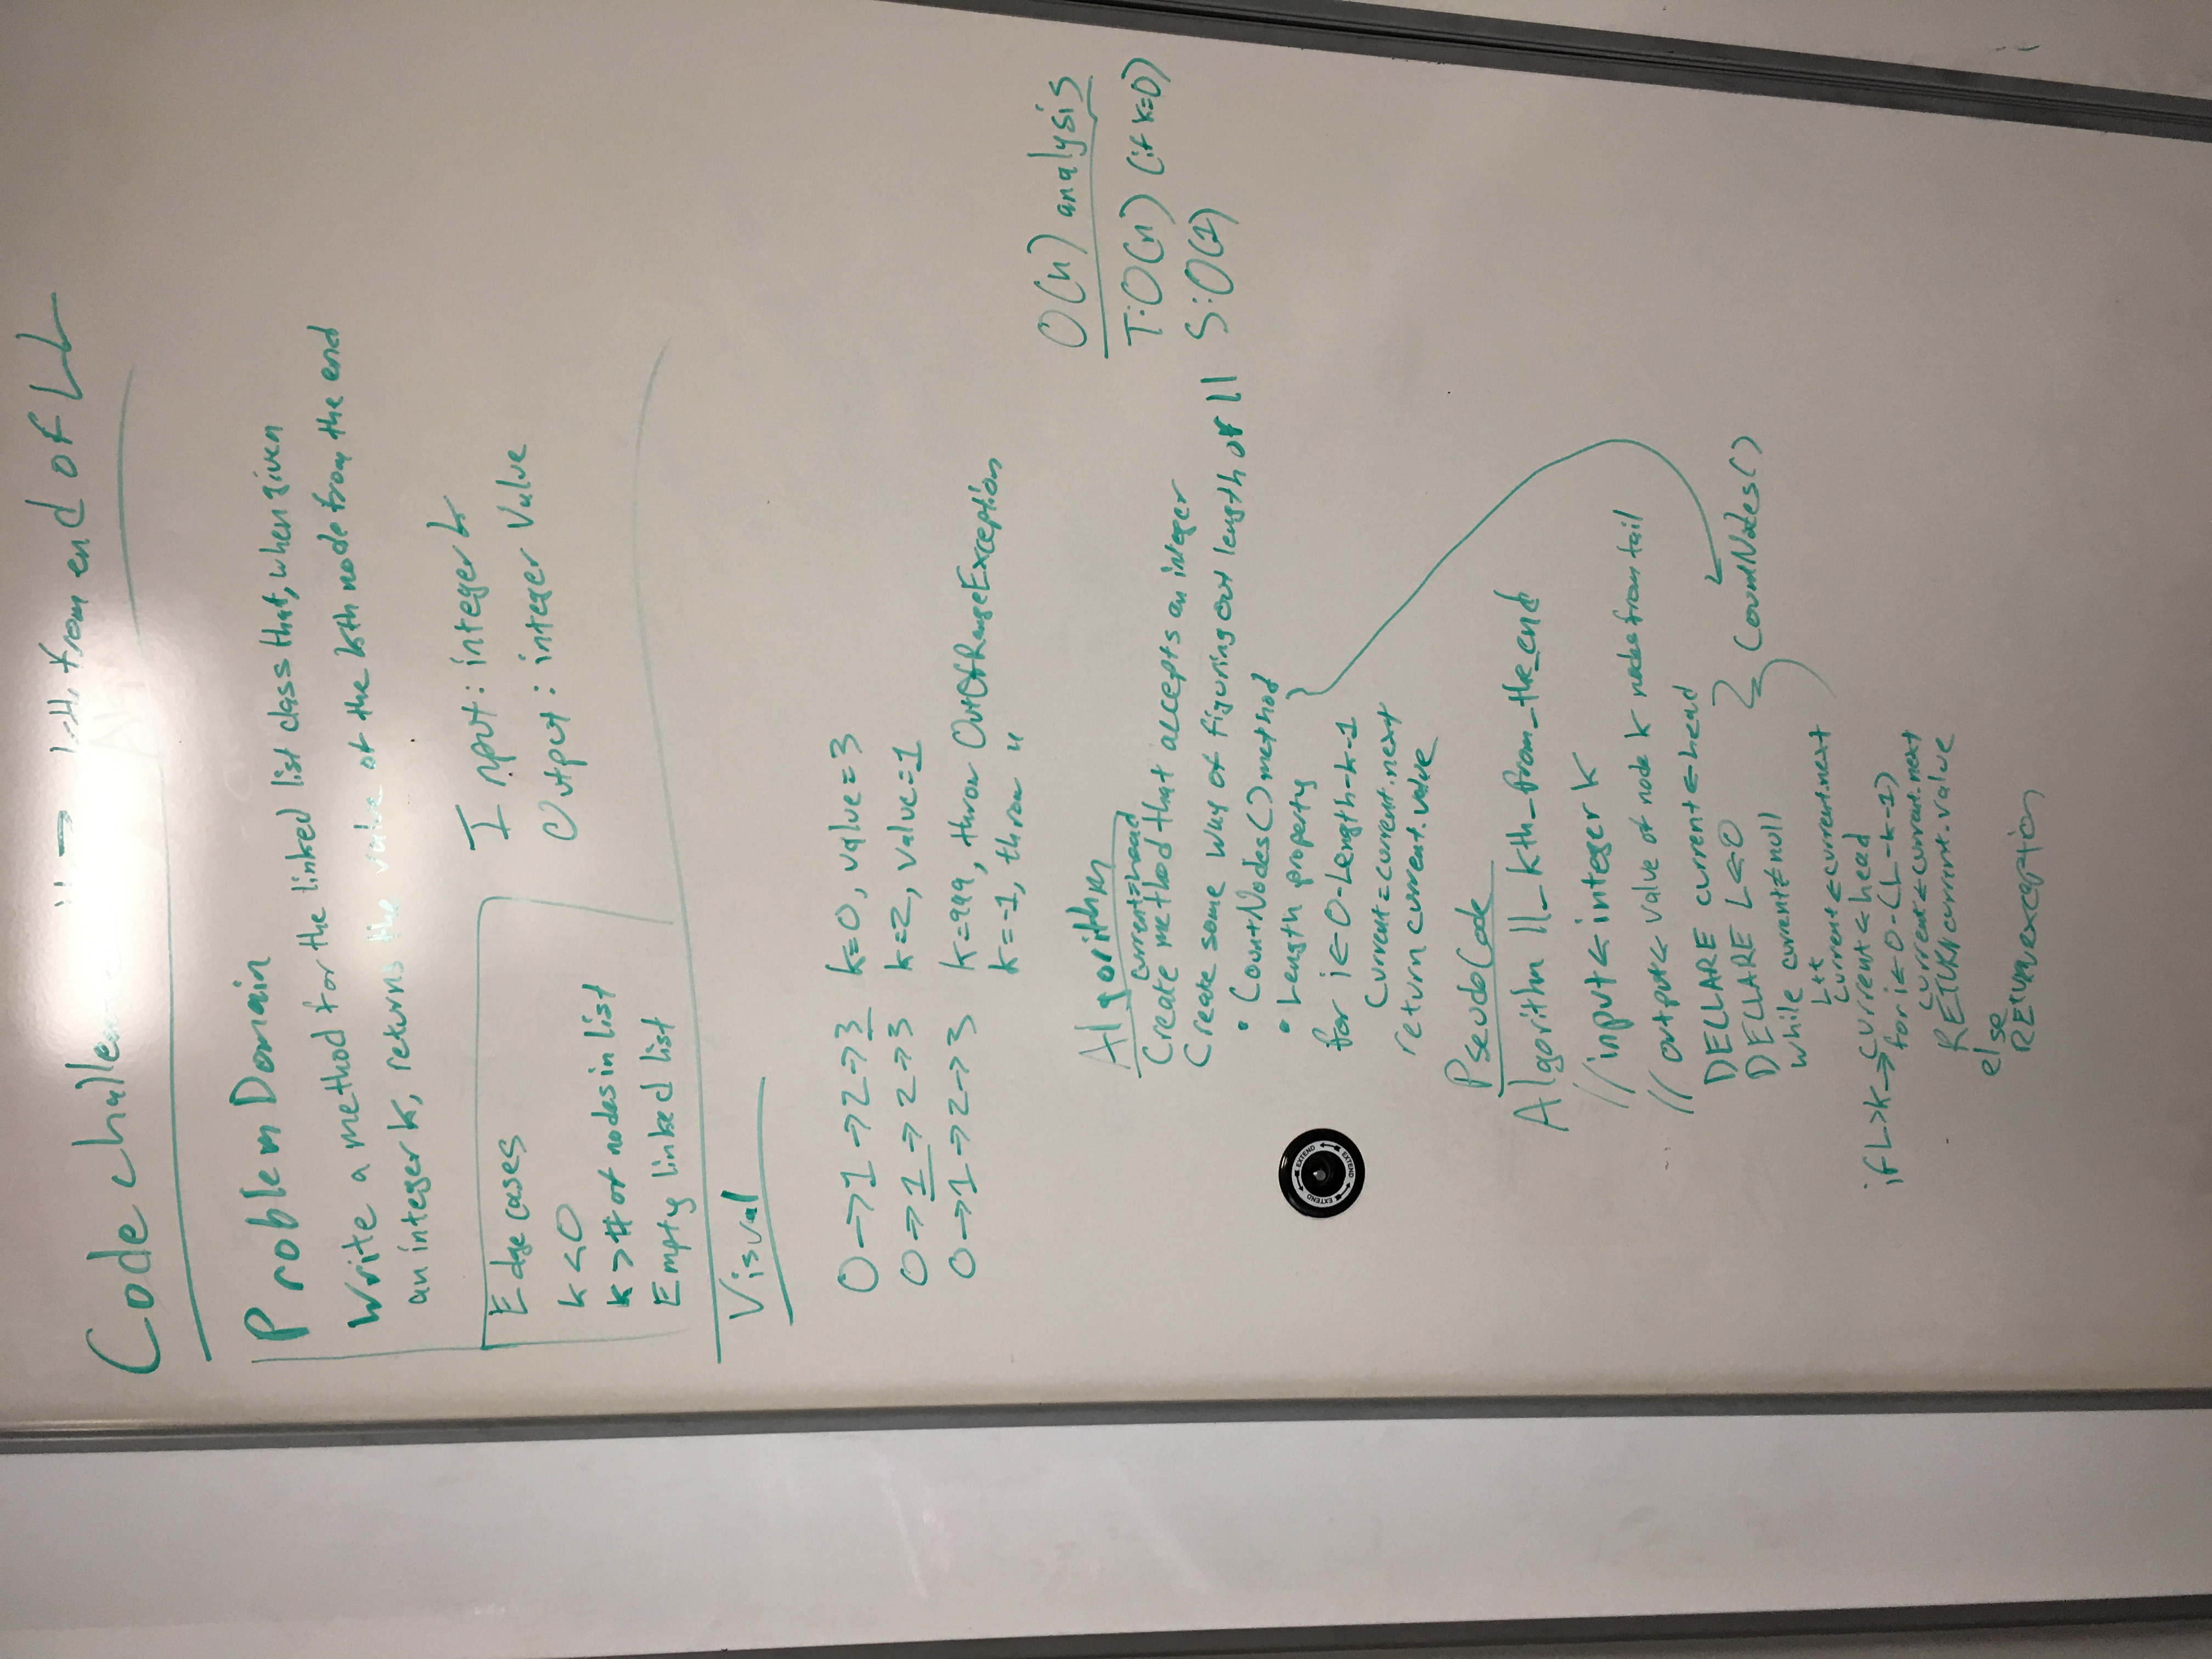 Code challe kth from end of LL
Problem Domain
Write a method for the linked list class that, when given
an integer k, returns the value of the kth node from the end
Edge cases
k<0
k># of nodes in list
Empty linked list
Input: integer k
Output: integer Value
Visual
0→1→2→3 k=0, value=3
0→1→2→3 k=2, value=1
0→1→2→3 k=999, throw OutOfRangeException
k=-1, throw "
Algorithm
current=head
Create method that accepts an integer
Create some way of figuring out length of ll
• CountNodes() method
• Length property
for i←0-Length-k-1
Current=current.next
return current.value
O(n) analysis
T:O(n) (if k=0)
S:O(1)
EXTEND EXTEND EXTEND EXTEND
PseudoCode
Algorithm ll_kth_from_the_end
//input←integer k
//output←value of node k nodes from tail
DECLARE current←head
DECLARE L←0
while current≠null
L++
current←current.next
CountNodes()
if L>k→current←head
for i←0-(L-k-1)
current←current.next
RETURN current.value
else
RETURN exception